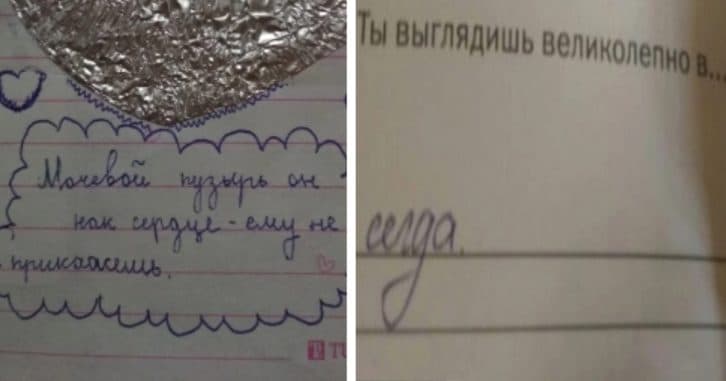 Мочевой пузырь он
как сердце - ему не
прикажешь.
Ты выглядишь великолепно в...
сегда.